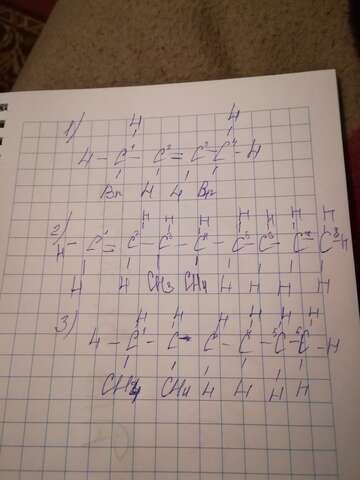 1)
H H
H - C¹ - C² = C³ - C⁴ - H
Br H H Br
2)
H H H H H H H
H - C¹ = C² - C³ - C - C⁵ - C⁶ - C⁷ - C⁸ H
H H CH3 CH4 H H H H
3)
H H H H H H
H - C¹ - C - C - C - C⁵ - C⁶ - H
CH4 CH4 H H H H